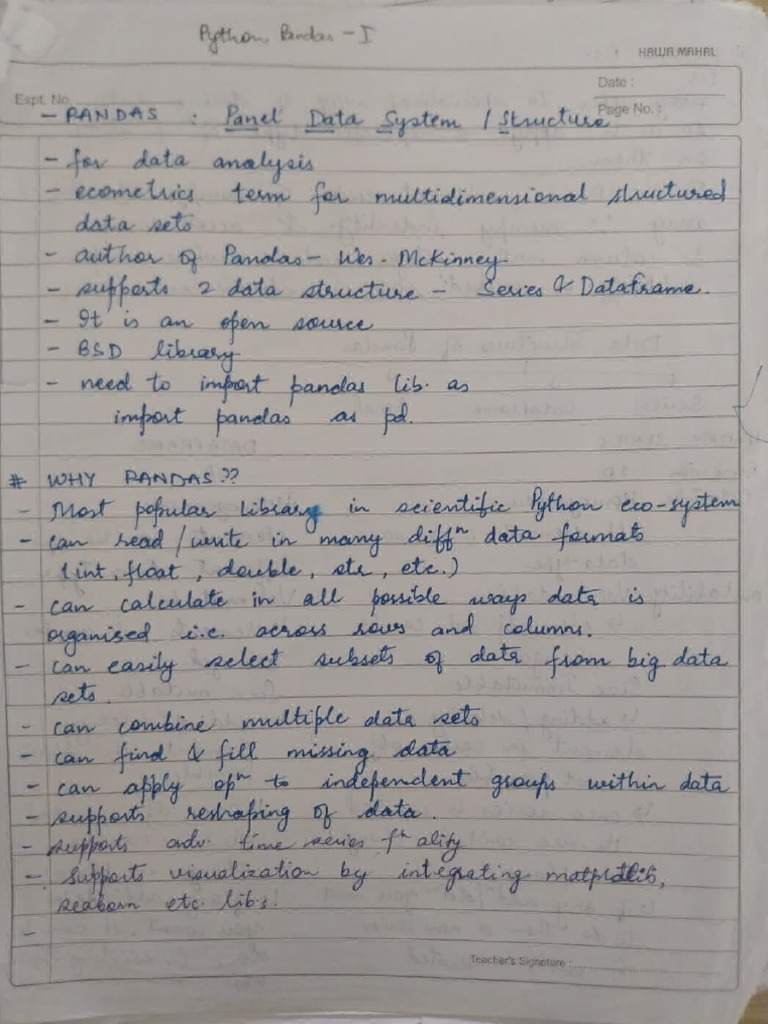 Python Pandas - I
HAWA MAHAL
Date :
Expt. No.
Page No. :
- PANDAS : Panel Data System / Structure
- for data analysis
- ecometrics term for multidimensional structured
data sets
- author of Pandas - Wes - McKinney
- supports 2 data structure - Series & Dataframe.
- It is an open source
- BSD library
- need to import pandas lib. as
import pandas as pd.
# WHY PANDAS ??
- Most popular Library in scientific Python eco-system
- can read / write in many diffⁿ data formats
(int, float, double, str, etc.)
- can calculate in all possible ways data is
organised i.e. across rows and columns.
- can easily select subsets of data from big data
sets.
- can combine multiple data sets
- can find & fill missing data
- can apply opⁿ to independent groups within data
- supports reshaping of data.
- supports adv. time series fⁿality
- supports visualization by integrating matplotlib,
seaborn etc. lib.s.
-
Teacher's Signature :